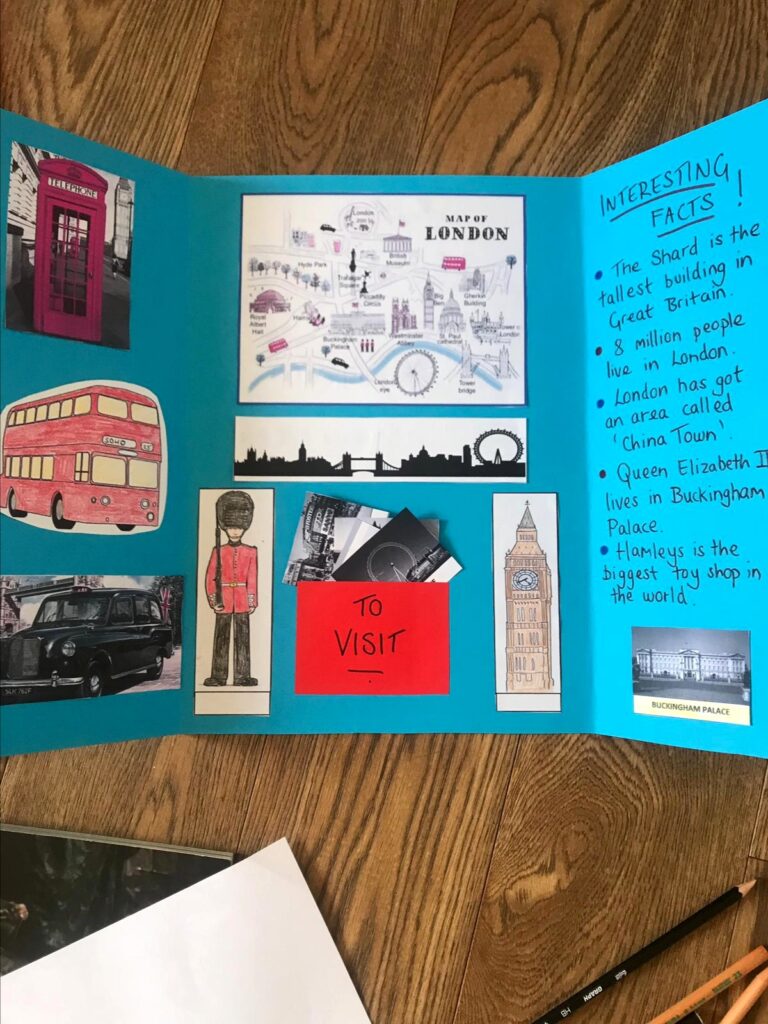 TELEPHONE
SOHO
MAP OF
LONDON
London
zoo
Hyde Park
British
Museum
Trafalgar
Square
Piccadilly
Circus
Big
Ben
Gherkin
Building
Royal
Albert
Hall
Buckingham
Palace
Westminster
Abbey
St Paul
cathedral
Tower of
London
London
eye
Tower
bridge
TO
VISIT
INTERESTING
FACTS !
• The Shard is the
tallest building in
Great Britain.
• 8 million people
live in London.
• London has got
an area called
'China Town'.
• Queen Elizabeth II
lives in Buckingham
Palace.
• Hamleys is the
biggest toy shop in
the world.
BUCKINGHAM PALACE
GRAPH